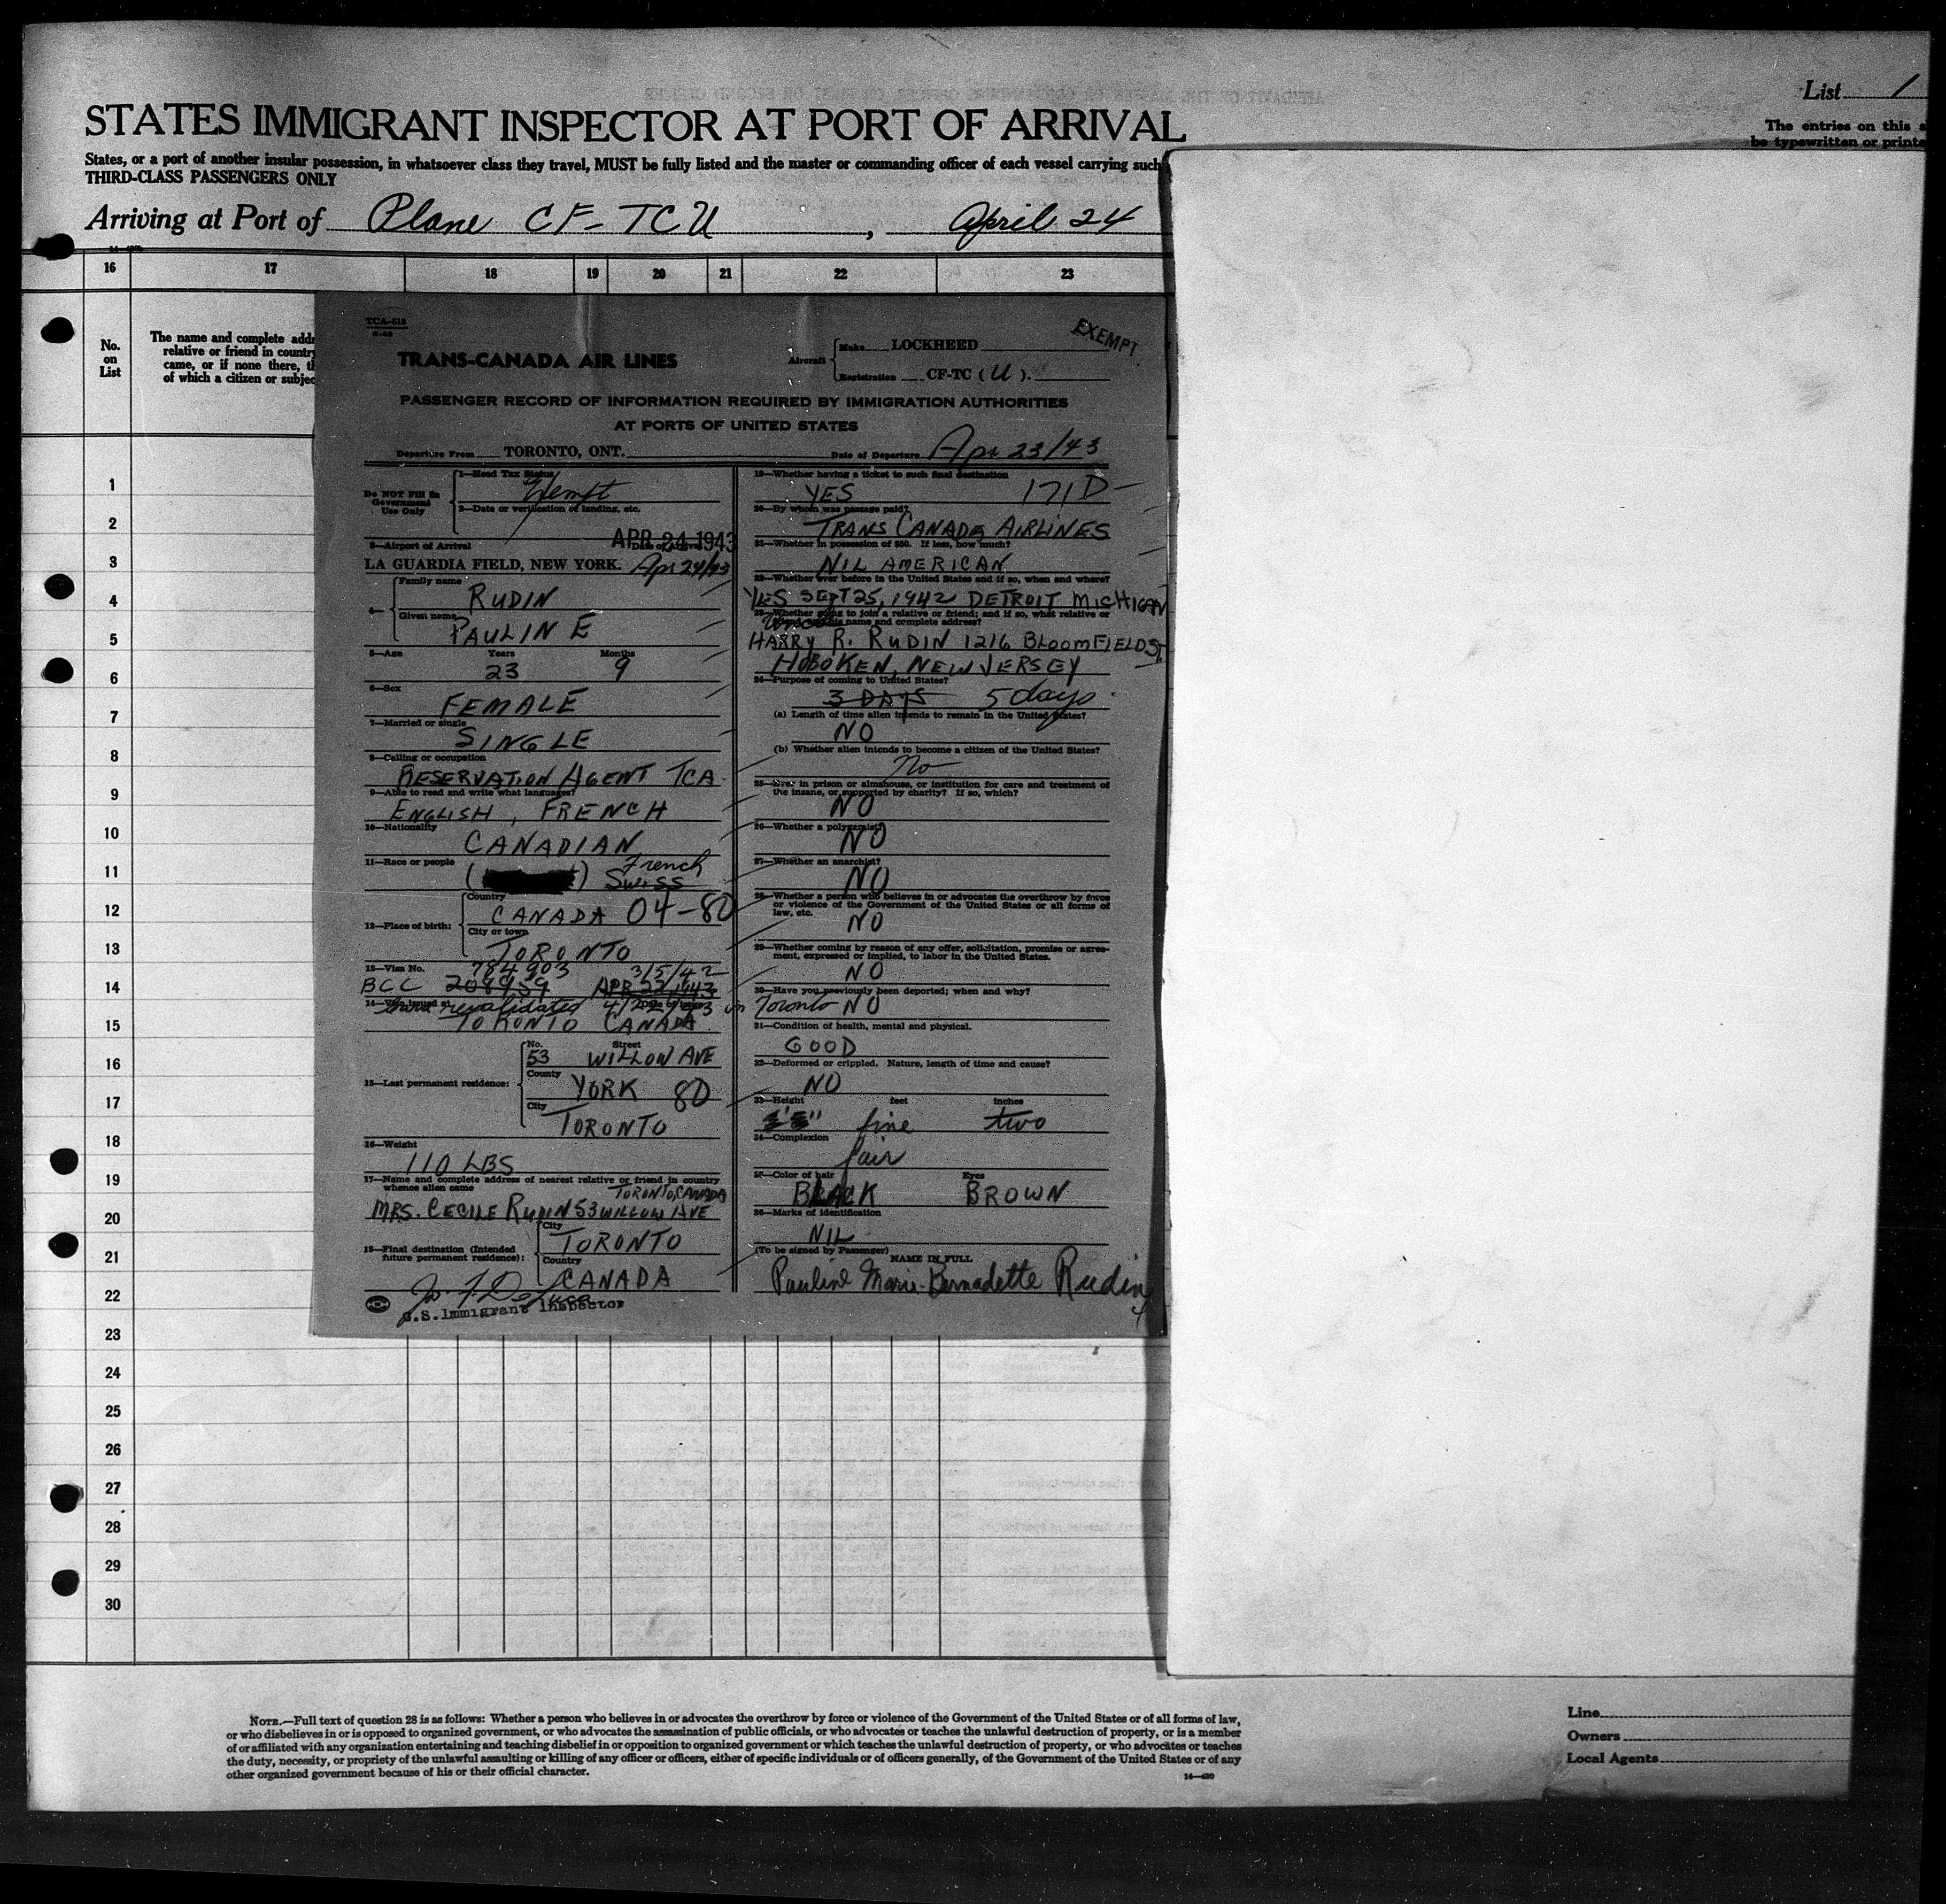 List 1
STATES IMMIGRANT INSPECTOR AT PORT OF ARRIVAL
The entries on this
be typewritten or printe
States, or a port of another insular possession, in whatsoever class they travel, MUST be fully listed and the master or commanding officer of each vessel carrying such
THIRD-CLASS PASSENGERS ONLY
Arriving at Port of Plane CF-TCU, April 24
16 17 18 19 20 21 22 23
No. on List
The name and complete addr
relative or friend in country
came, or if none there, th
of which a citizen or subjec
TCA-518
EXEMPT
TRANS-CANADA AIR LINES
Aircraft Make LOCKHEED
Registration CF-TC (U).
PASSENGER RECORD OF INFORMATION REQUIRED BY IMMIGRATION AUTHORITIES
AT PORTS OF UNITED STATES
Departure From TORONTO, ONT. Date of Departure Apr 23/43
Do NOT Fill In Government Use Only
1—Head Tax Status
Exempt
2—Date or verification of landing, etc.
APR 24 1943
3—Airport of Arrival
LA GUARDIA FIELD, NEW YORK. Apr 24/43
4— Family name
RUDIN
Given name
PAULINE
5—Age Years Months
23 9
6—Sex
FEMALE
7—Married or single
SINGLE
8—Calling or occupation
RESERVATION AGENT TCA
9—Able to read and write what languages?
ENGLISH, FRENCH
10—Nationality
CANADIAN
11—Race or people
French
Swiss
12—Place of birth: Country
CANADA 04-80
City or town
TORONTO
13—Visa No. 784903 3/5/42
BCC 208959 APR 22 1943
14—Visa issued at
revalidated 4/22/43 in Toronto
TORONTO CANADA
15—Last permanent residence: No. Street
53 WILLOW AVE
County
YORK 80
City
TORONTO
16—Weight
110 LBS
17—Name and complete address of nearest relative or friend in country
whence alien came
TORONTO, CANADA
MRS. CECILE RUDIN 53 WILLOW AVE
18—Final destination (Intended future permanent residence): City
TORONTO
Country
CANADA
U.S. Immigrant Inspector
19—Whether having a ticket to such final destination
YES 171D-
20—By whom was passage paid?
TRANS CANADA AIRLINES
21—Whether in possession of $50. If less, how much?
NIL AMERICAN
22—Whether ever before in the United States and if so, when and where?
YES SEPT 25, 1942 DETROIT MICHIGAN
23—Whether going to join a relative or friend; and if so, what relative or
name and complete address?
HARRY R. RUDIN 1216 BLOOMFIELD ST.
HOBOKEN, NEW JERSEY
24—Purpose of coming to United States?
3 DAYS 5 days
(a) Length of time alien intends to remain in the United States?
NO
(b) Whether alien intends to become a citizen of the United States?
No
25—Ever in prison or almshouse, or institution for care and treatment of
the insane, or supported by charity? If so, which?
NO
26—Whether a polygamist?
NO
27—Whether an anarchist?
NO
28—Whether a person who believes in or advocates the overthrow by force
or violence of the Government of the United States or all forms of
law, etc.
NO
29—Whether coming by reason of any offer, solicitation, promise or agree-
ment, expressed or implied, to labor in the United States.
NO
30—Have you previously been deported; when and why?
NO
31—Condition of health, mental and physical.
GOOD
32—Deformed or crippled. Nature, length of time and cause?
NO
33—Height feet inches
five two
34—Complexion
fair
35—Color of hair Eyes
BLACK BROWN
36—Marks of identification
NIL
(To be signed by Passenger) NAME IN FULL
Pauline Marie-Bernadette Rudin
1
2
3
4
5
6
7
8
9
10
11
12
13
14
15
16
17
18
19
20
21
22
23
24
25
26
27
28
29
30
NOTE.—Full text of question 28 is as follows: Whether a person who believes in or advocates the overthrow by force or violence of the Government of the United States or of all forms of law,
or who disbelieves in or is opposed to organized government, or who advocates the assassination of public officials, or who advocates or teaches the unlawful destruction of property, or is a member
of or affiliated with any organization entertaining and teaching disbelief in or opposition to organized government or which teaches the unlawful destruction of property, or who advocates or teaches
the duty, necessity, or propriety of the unlawful assaulting or killing of any officer or officers, either of specific individuals or of officers generally, of the Government of the United States or of any
other organized government because of his or their official character.
Line
Owners
Local Agents